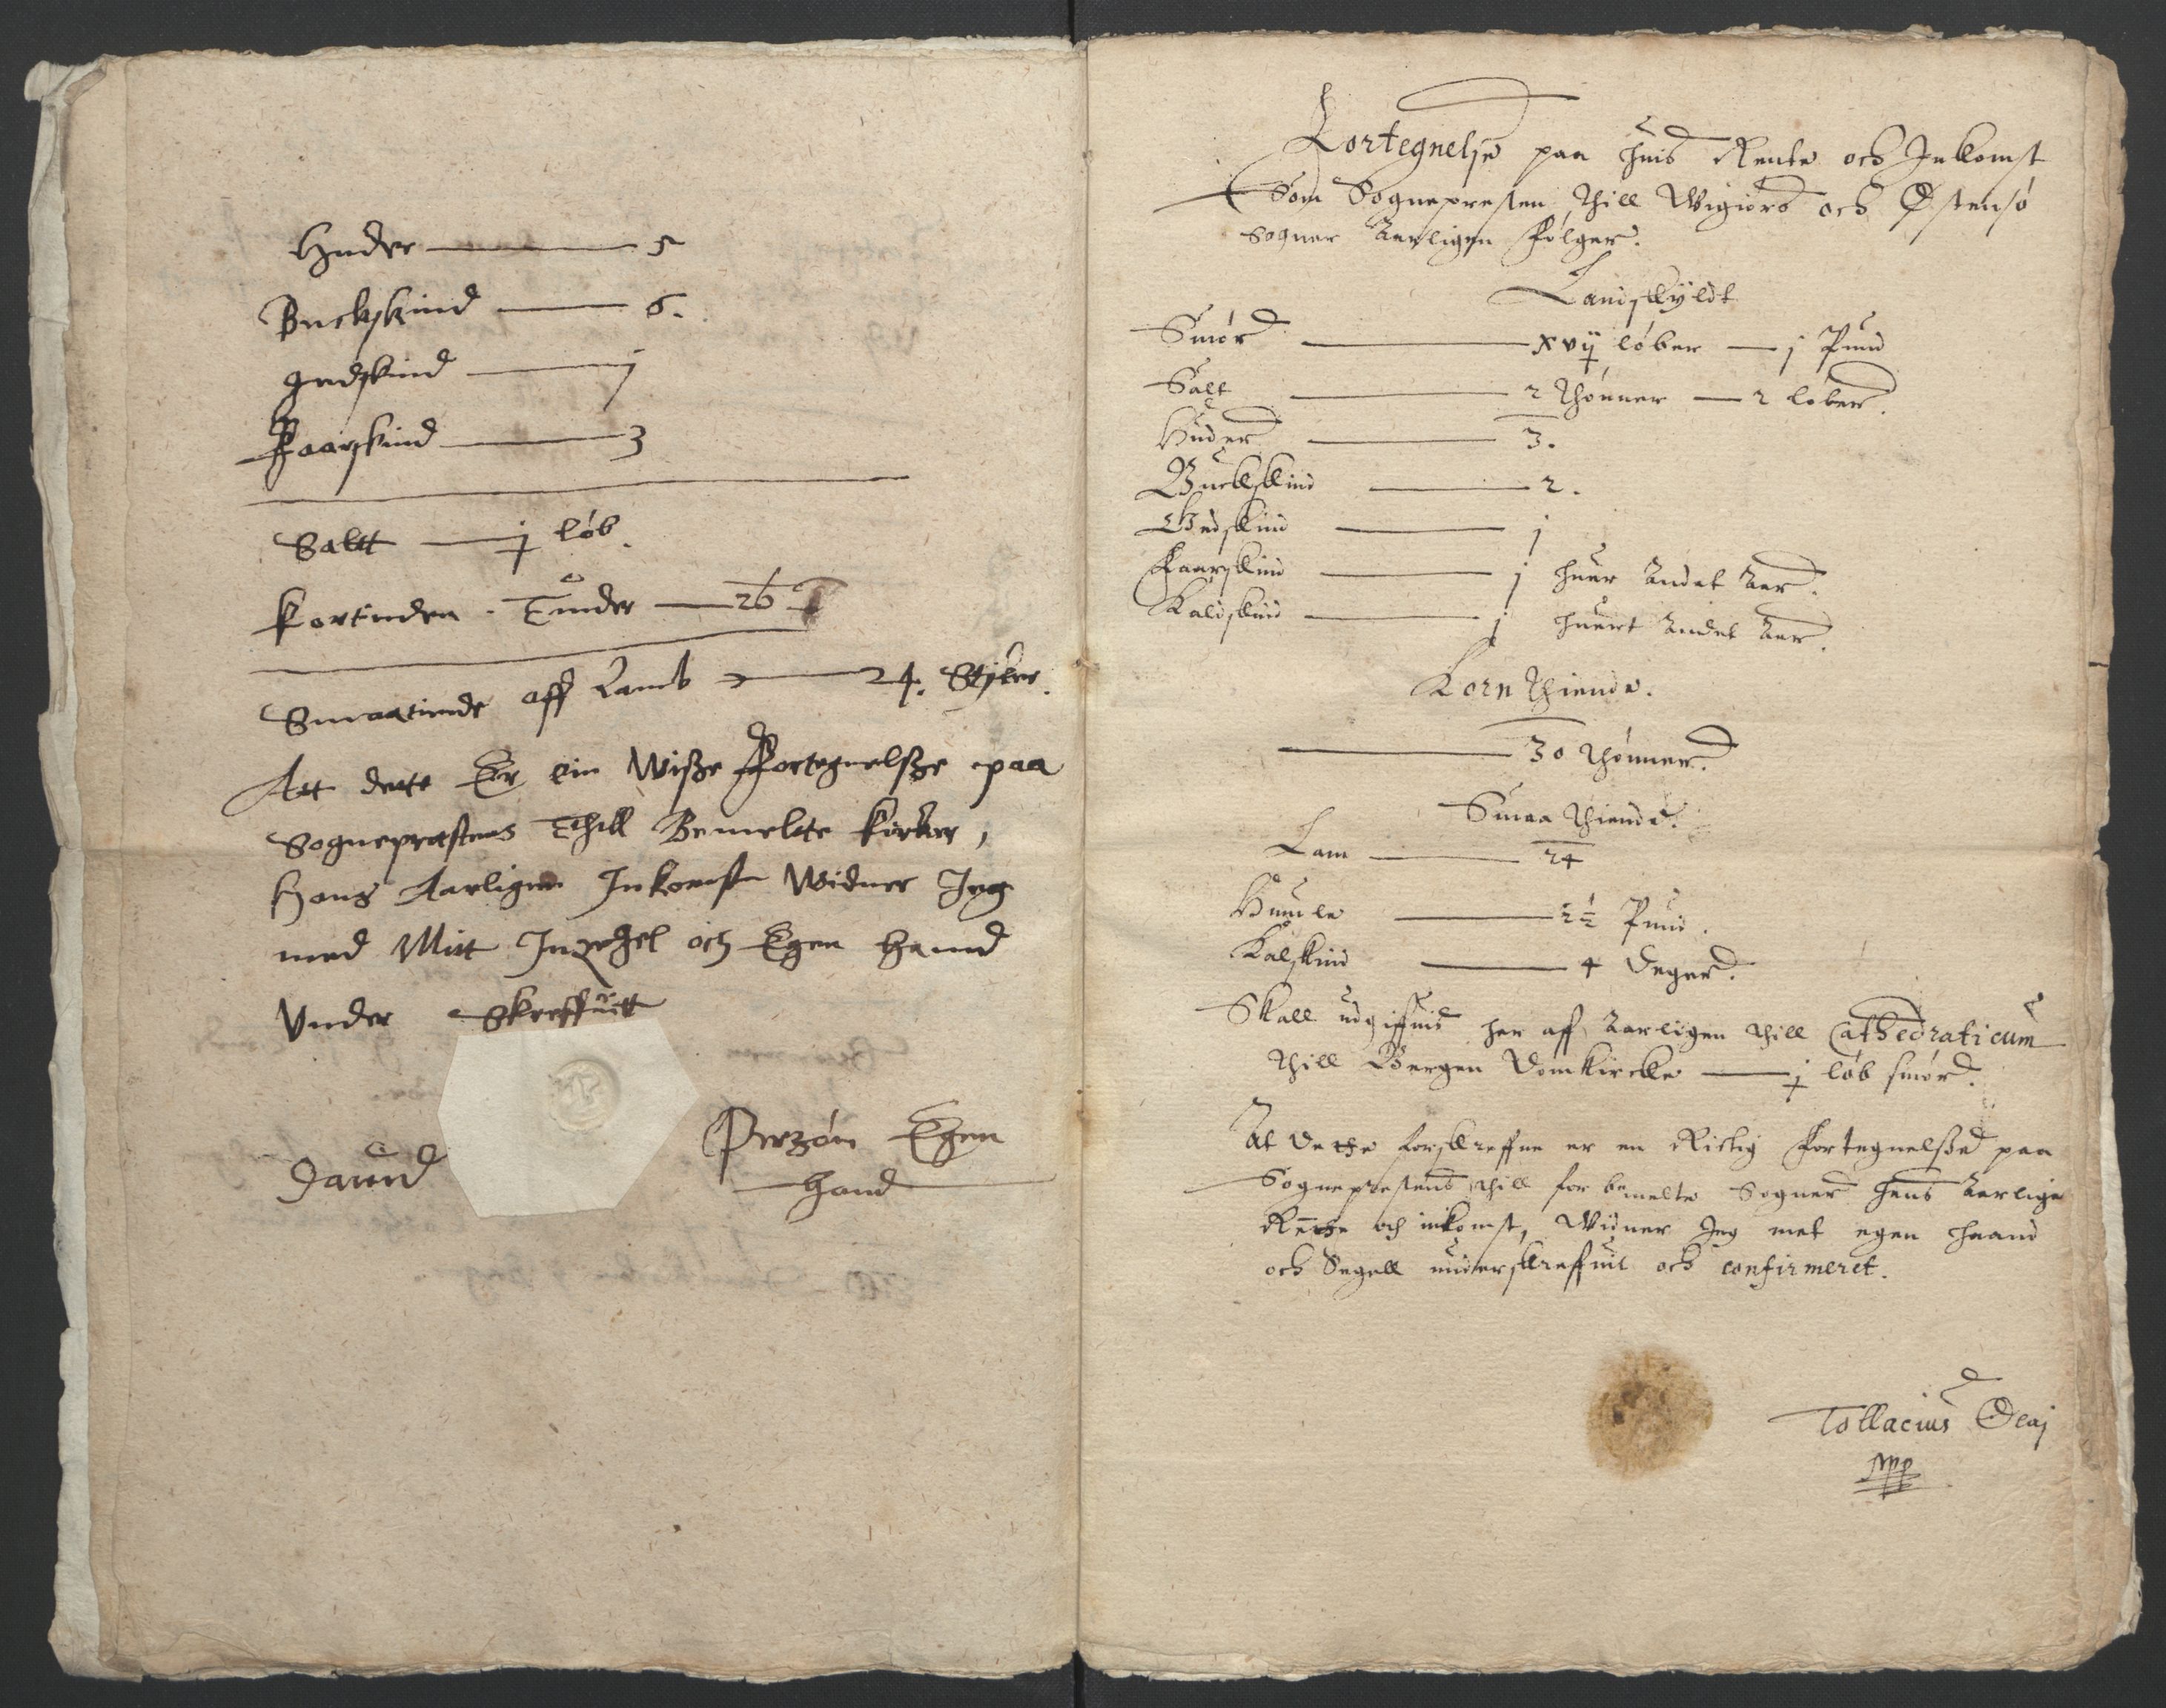 Huder — 5
Buckskind — 6.
Gedskind — j
Faarskind — 3
Saltt — j løb.
Kortinden - Tünder — 26
Smaatinde aff Lamb — 24. Stÿker.
Att dette Er ein Wisze Fortegnelsze paa
Sognepræstens Thill Bemelte kirker,
Hans Aarligen Inkomst Widner Jeg
med Mitt Inzegel och Egen Hannd
Vnder Skreffuitt
Dauid Perzøn Egen
Hand
Fortegnelse paa huis Rente och Inkomst
Som Sognepresten thill Wigiørs och Østensø
Sogner Aarligen følger.
Landskÿldt
Smør — xvij løber — j Pund
Salt — 2 thønner — 2 løber.
Huder — 3.
Buckskind — 2.
Gedskind — j
Faarskind — j huer andet Aar.
Kalfskind — j huert andet Aar.
Korn thiende.
— 30 thønner.
Smaa thiende.
Lam — 24
Humle — 2½ Pund.
Kalskind — 4 Deger.
Skall udgiffuis her aff Aarligen thill Cathedraticum
thill Bergen Domkircke — j løb smør.
At dette forskreffne er en Richtig Fortegnelsze paa
Sogneprestens thill forbemelte Sogner hans Aarlige
Rente och inkomst, Widner Jeg met egen haand
och Segell underskreffuit och confirmeret.
Tollacius Olaj
mpp